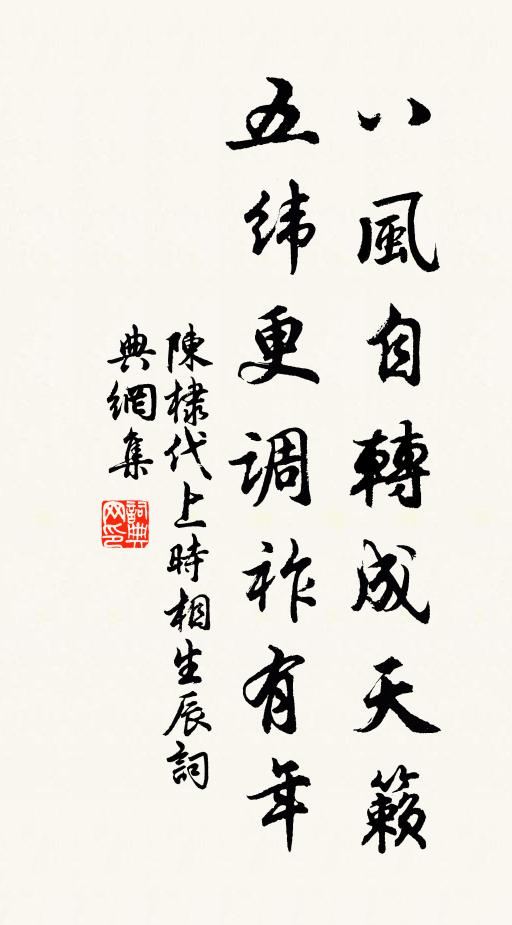 八風自轉成天籟
五緯更調祚有年
陳棣代上時相生辰詞
典網集
詞典
网印